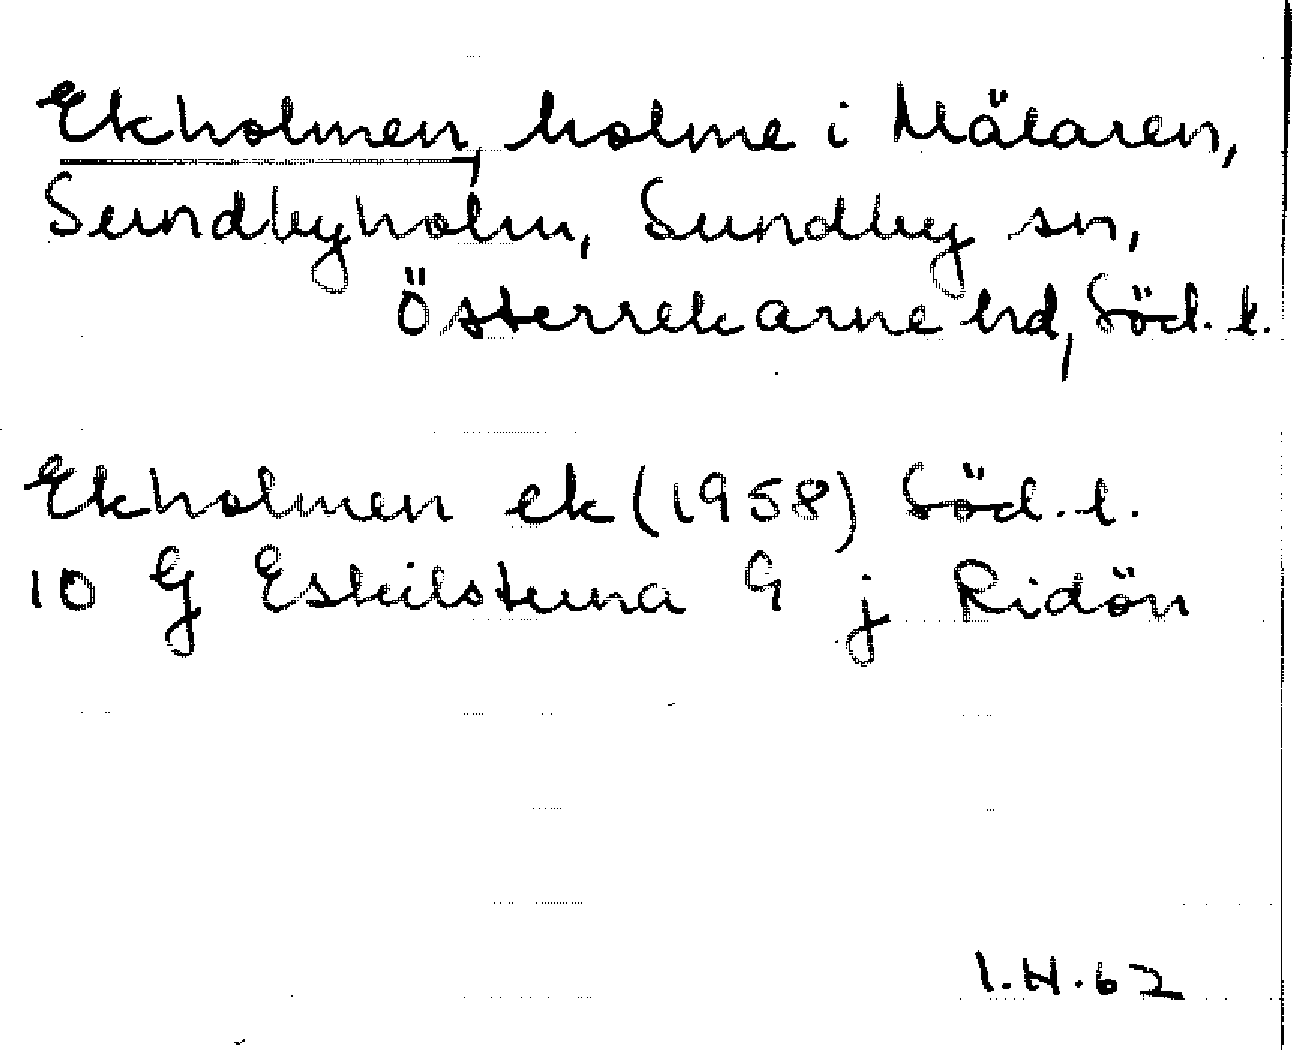 Ekholmen, holme i Mälaren,
Sundbyholm, Sundby sn,
Österrekarne hd, Söd. l.
Ekholmen ek (1958) Söd. l.
10 G Eskilstuna 9 j Ridön
I.H.62